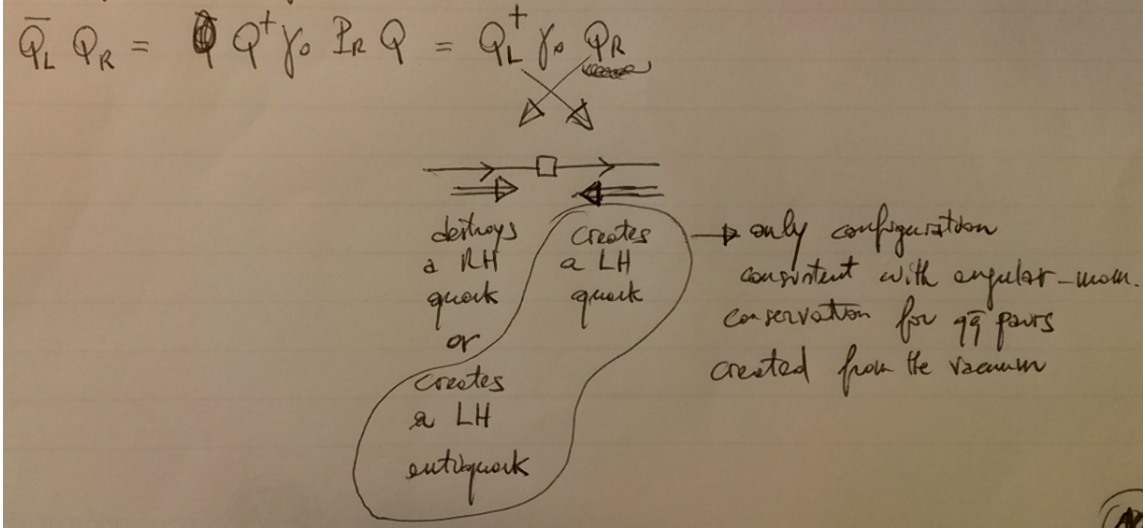 Q̄_L Q_R = Q† γ₀ P_R Q = Q_L† γ₀ Q_R
destroys
a RH
quark
or
creates
a LH
antiquark
creates
a LH
quark
→ only configuration
consistent with angular-mom.
conservation for qq̄ pairs
created from the vacuum